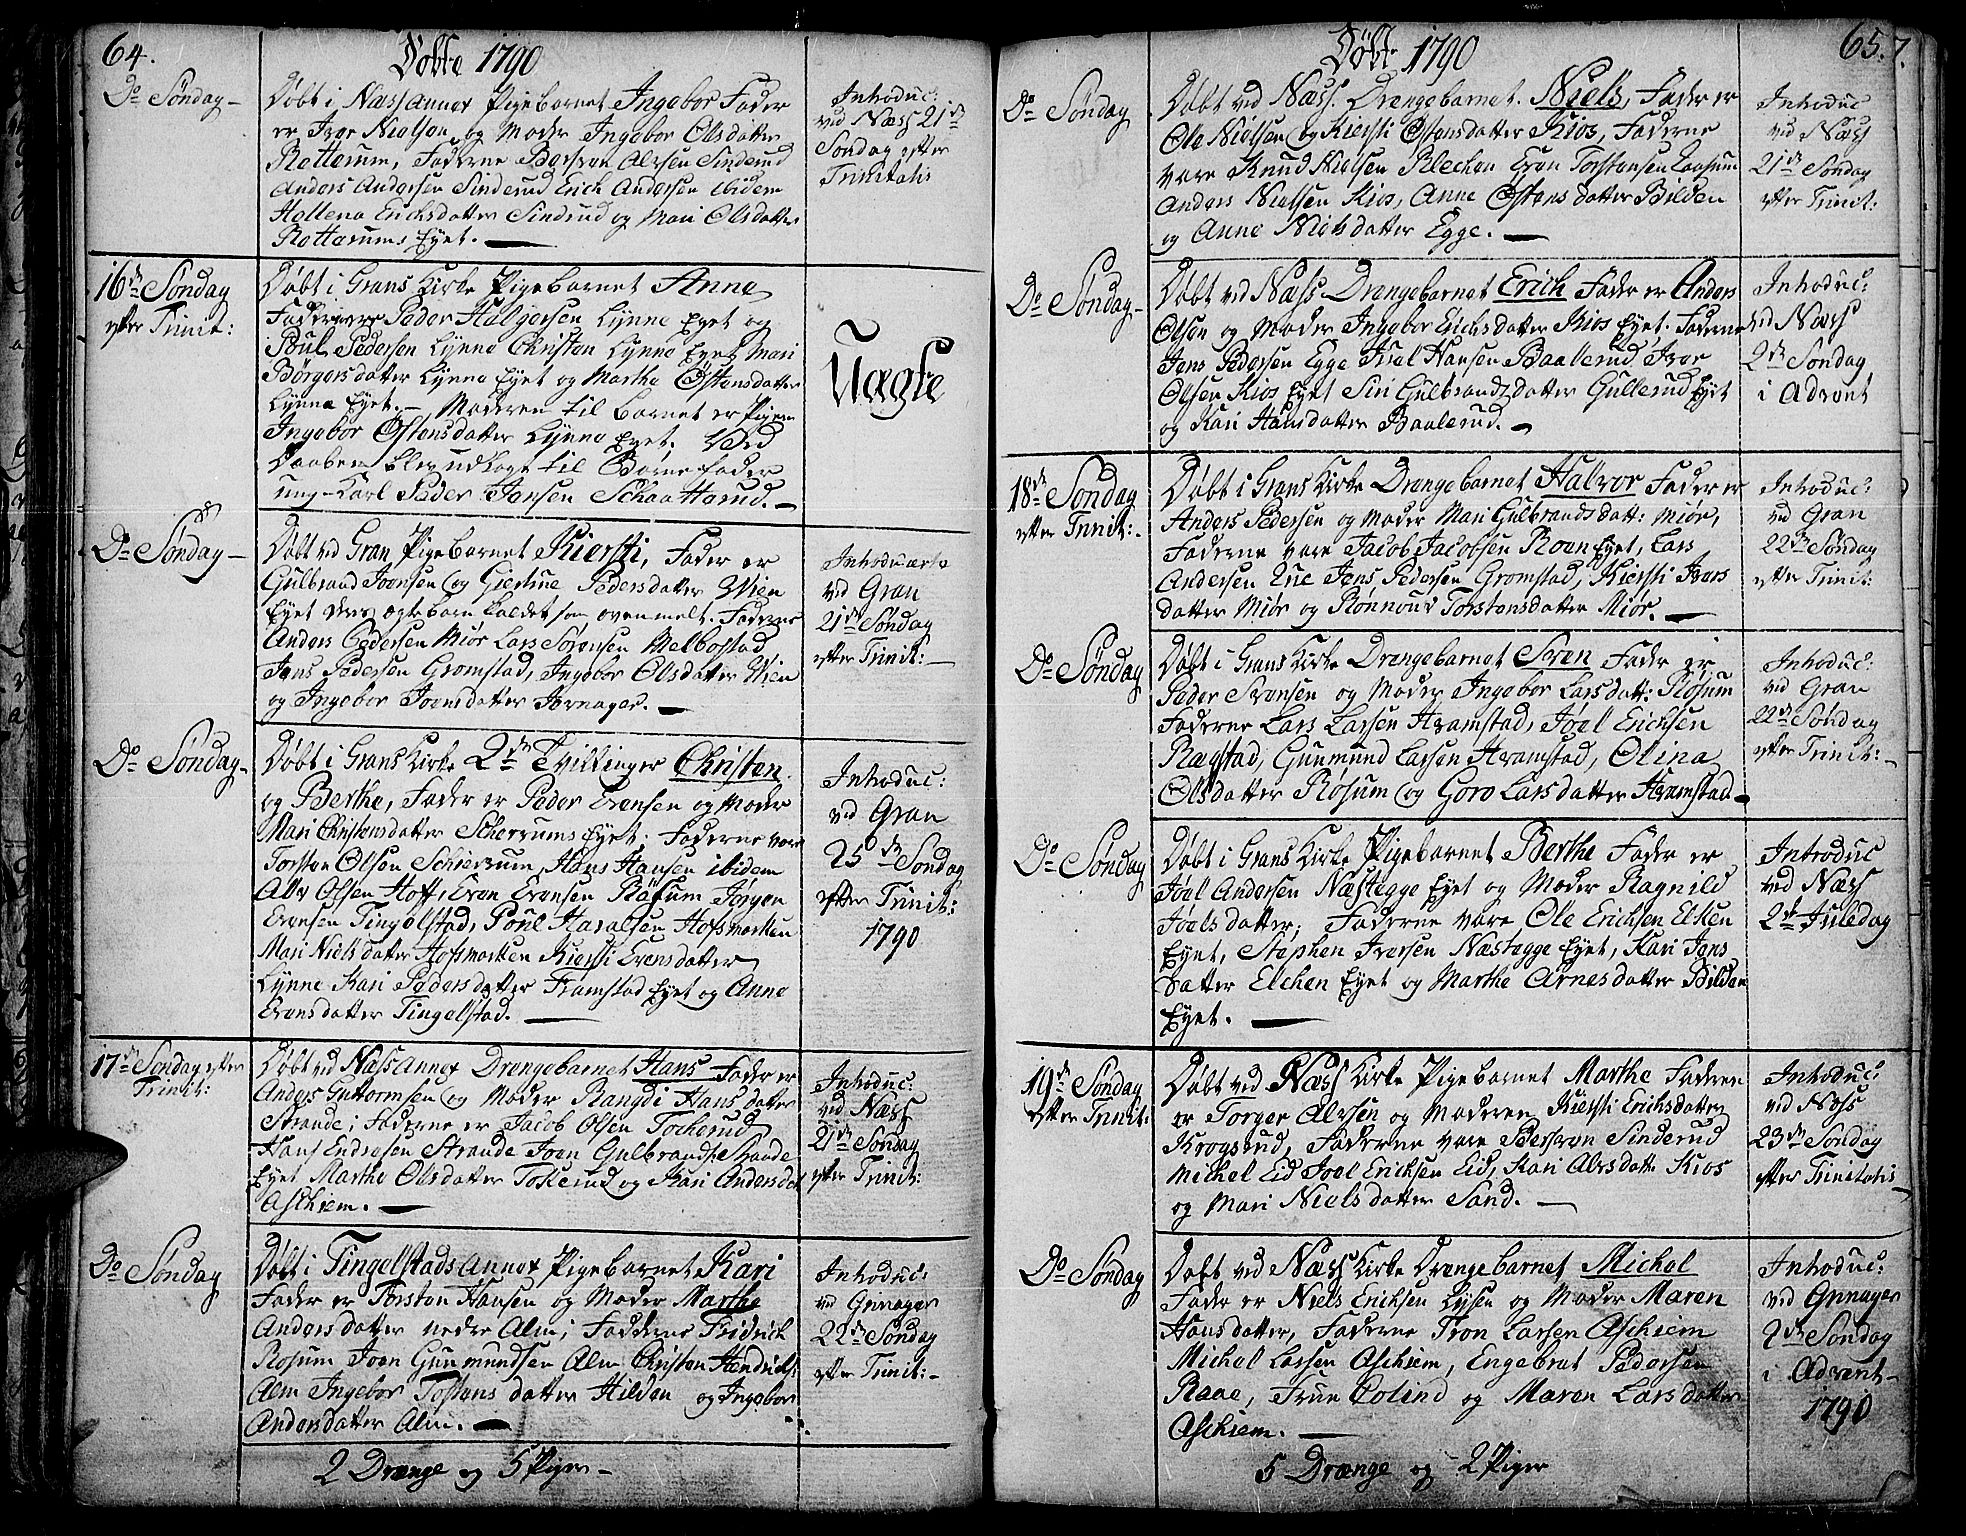 64.
Døbte 1790
Do Søndag —
Døbt i Næss Annex Pigebarnet Ingebor Fader
er Iver Nielsen og Moder Ingebor Olsdatter
Rotterum, Fadderne Bersven Alvsen Sinderud
Anders Andersen Sinderud Erich Andersen ibidem
Hellena Erichsdatter Sindrud og Mari Olsdatter
Rotterums Eyet. —
Introduc:
ved Næss 21de
Søndag efter
Trinitatis
16de Søndag
efter Trinit:
Døbt i Grans Kirke Pigebarnet Anne
Fadderne Peder Halgersen Lynne Eyet og
Poul Pedersen Lynne Christen Lynne Eyet Mari
Børgersdatter Lynne Eyet og Marthe Østensdatter
Lynne Eyet. — Moderen til barnet er Pigen
Ingebor Østensdatter Lynne Eyet. Ved
Daaben blev udlagt til Barnefader
ung-Karl Peder Jensen Schaatterud. —
Uægte
Do Søndag —
Døbt ved Gran Pigebarnet Kiersti, Fader er
Gulbrand Joensen og Giertrue Pedersdatter Wien
Eyet deres ægtebarn kaldet som ovenmelt. Fadderne
Anders Pedersen Miør Lars Sørensen Melbostad
Jens Pedersen Gromstad, Ingebor Olsdatter Wien
og Ingebor Joensdatter Jernager. —
Introducerte
ved Gran
21de Søndag
efter Trinit: —
Do Søndag —
Døbt i Grans Kirke 2de Tvillinger Christen
og Berthe, Fader er Peder Evensen og Moder
Mari Christensdatter Scherrums Eyet; Fadderne vare
Torsten Olsen Schierrum, Hans Hansen ibidem
Alv Olsen Hoff, Even Evensen Råsum Jørgen
Evensen Tingelstad, Poul Haralsen Hofsmarken
Mari Nielsdatter Hofsmarken Kiersti Evensdatter
Lynne Kari Pedersdatter Framstad Eyet og Anne
Evensdatter Tingelstad. —
Introduc:
ved Gran
25de Søndag
efter Trinit:
1790
17de Søndag efter
Trinit:
Døbt ved Næss Annex Drengebarnet Hans Fader er
Anders Guttormsen og Moder Rangdi Hansdatter
Strande; Fadderne er Jacob Olsen Tockerud
Hans Endresen Strande Joen Gulbrands: Raade
Eyet Marthe Olsdatter Tokerud og Kari Andersdat
Aschiem. —
Introduc:
ved Næss
21de Søndag
efter Trinit:
Do Søndag
Døbt i Tingelstads Annex Pigebarnet Kari
Fader er Torsten Hansen og Moder Marthe
Andersdatter nedre Alm; Fadderne Fridrich
Rosum Joen Gunmundsen Alm Christen Hendrichs:
Alm Ingebor Tostensdatter Hilden og Ingebor
Andersdatter Alm. —
Introduc:
ved Grinager
22de Søndag
efter Trinit: —
2 Drenge og 5 Piger —
65.
Døbte 1790
Do Søndag
Døbt ved Næss. Drengebarnet. Niels, Fader er
Ole Nielsen og Kiersti Østensdatter Kios, Fadderne
vare Knud Nielsen Blechen Even Torstensen Laasum
Anders Nielsen Kios, Anne Østensdatter Bilden
og Anne Nielsdatter Egge. —
Introduc
ved Næss
21de Søndag
efter Trinit:
Do Søndag —
Døbt ved Næss Drengebarnet Erich Fader er Anders
Olsen og Moder Ingebor Erichsdatter Kios Eyet. Fadderne
Jens Pedersen Egge Kiel Hansen Baalerud Iver
Olsen Kios Eyet Siri Gulbrandsdatter Gullerud Eyet
og Kari Hansdatter Baalerud. —
Introduc:
ved Næss
2de Søndag
i Advent
18de Søndag
efter Trinit:
Døbt i Grans Kirke Drengebarnet Halvor Fader er
Anders Pedersen og Moder Mari Gulbrandsdatt: Miør,
Fadderne vare Jacob Jacobsen Roen Eyet, Lars
Andersen Lue Jens Pedersen Gromstad, Kiersti Ivers
datter Miør og Rønnoug Torstensdatter Miør. —
Introduc:
ved Gran
22de Søndag
efter Trinit:
Do Søndag
Døbt i Grans Kirke Drengebarnet Sven Fader er
Peder Svensen og Moder Ingebor Larsdatt: Røsum
Fadderne Lars Larsen Framstad, Joel Erichsen
Ragstad, Gunmund Larsen Framstad, Olina
Olsdatter Røsum og Goro Larsdatter Framstad —
Introduc:
ved Gran
22de Søndag
efter Trinit: —
Do Søndag
Døbt i Grans Kirke Pigebarnet Berthe Fader er
Joel Andersen Næstegge Eyet og Moder Ragnild
Joelsdatter; Fadderne vare Ole Erichsen Elken
Eyet, Stephen Iversen Næstegge Eyet, Kari Jens
datter Elchen Eyet og Marthe Arnesdatter Bilden
Eyet. —
Introduc
ved Næss
2de Juledag
19de Søndag
efter Trinit:
Døbt ved Næss Kirke Pigebarnet Marthe Faderen
er Torger Alvsen og Moderen Kiersti Erichsdatter
Krogsrud, Fadderne vare Bersven Sinderud
Michel Eid Joel Erichsen Eid, Kari Alvsdatt: Kios
og Mari Nielsdatter Sand. —
Introduc:
ved Næss
23de Søndag
efter Trinitatis
Do Søndag
Døbt ved Næss Kirke Drengebarnet Michel
Fader er Niels Erichsen Lysen og Moder Maren
Hansdatter, Fadderne Tron Larsen Aschiem
Michel Larsen Aschiem, Engebret Pedersen
Raae, Frue Colind og Maren Larsdatter
Aschiem. —
Introduc:
ved Grinager
2de Søndag
i Advent —
1790
5 Drænge og 2 Piger